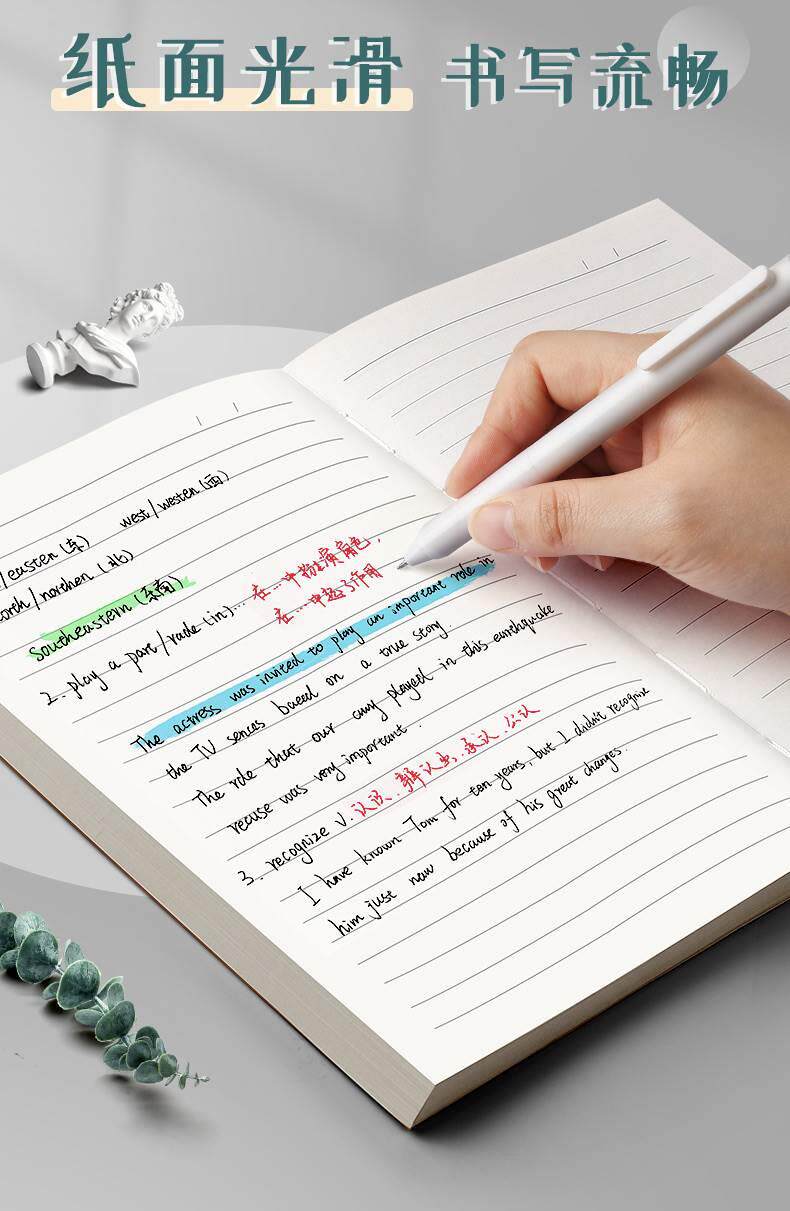 纸面光滑 书写流畅
/easten (东) west/westen (西)
orth/northen (北)
Southeastern (东南)
2. play a part/rade (in)... 在...中扮演角色,
在...中起了作用
The actress was invited to play an important role in
the TV sences based on a true story.
The role that our amy played in this earthquake
recuse was very important.
3. recognize V. 认识. 辨认出. 承认. 公认
I have known Tom for ten years, but I didn't recognize
him just now because of his great changes.